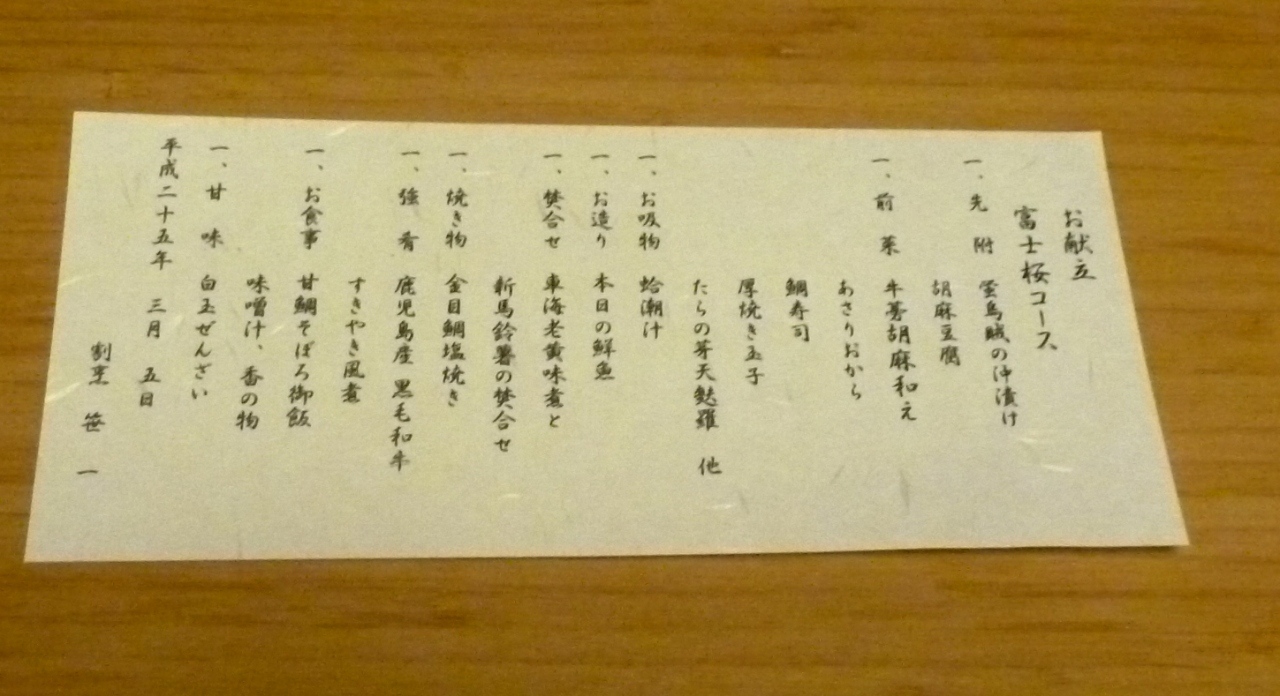 お献立
富士桜コース
一、先 附 蛍烏賊の沖漬け
胡麻豆腐
一、前 菜 牛蒡胡麻和え
あさりおから
鯛寿司
厚焼き玉子
たらの芽天麩羅 他
一、お吸物 蛤潮汁
一、お造り 本日の鮮魚
一、焚合せ 車海老黄味煮と
新馬鈴薯の焚合せ
一、焼き物 金目鯛塩焼き
一、強 肴 鹿児島産 黒毛和牛
すきやき風煮
一、お食事 甘鯛そぼろ御飯
味噌汁、香の物
一、甘 味 白玉ぜんざい
平成二十五年 三月 五日
割烹 笹 一